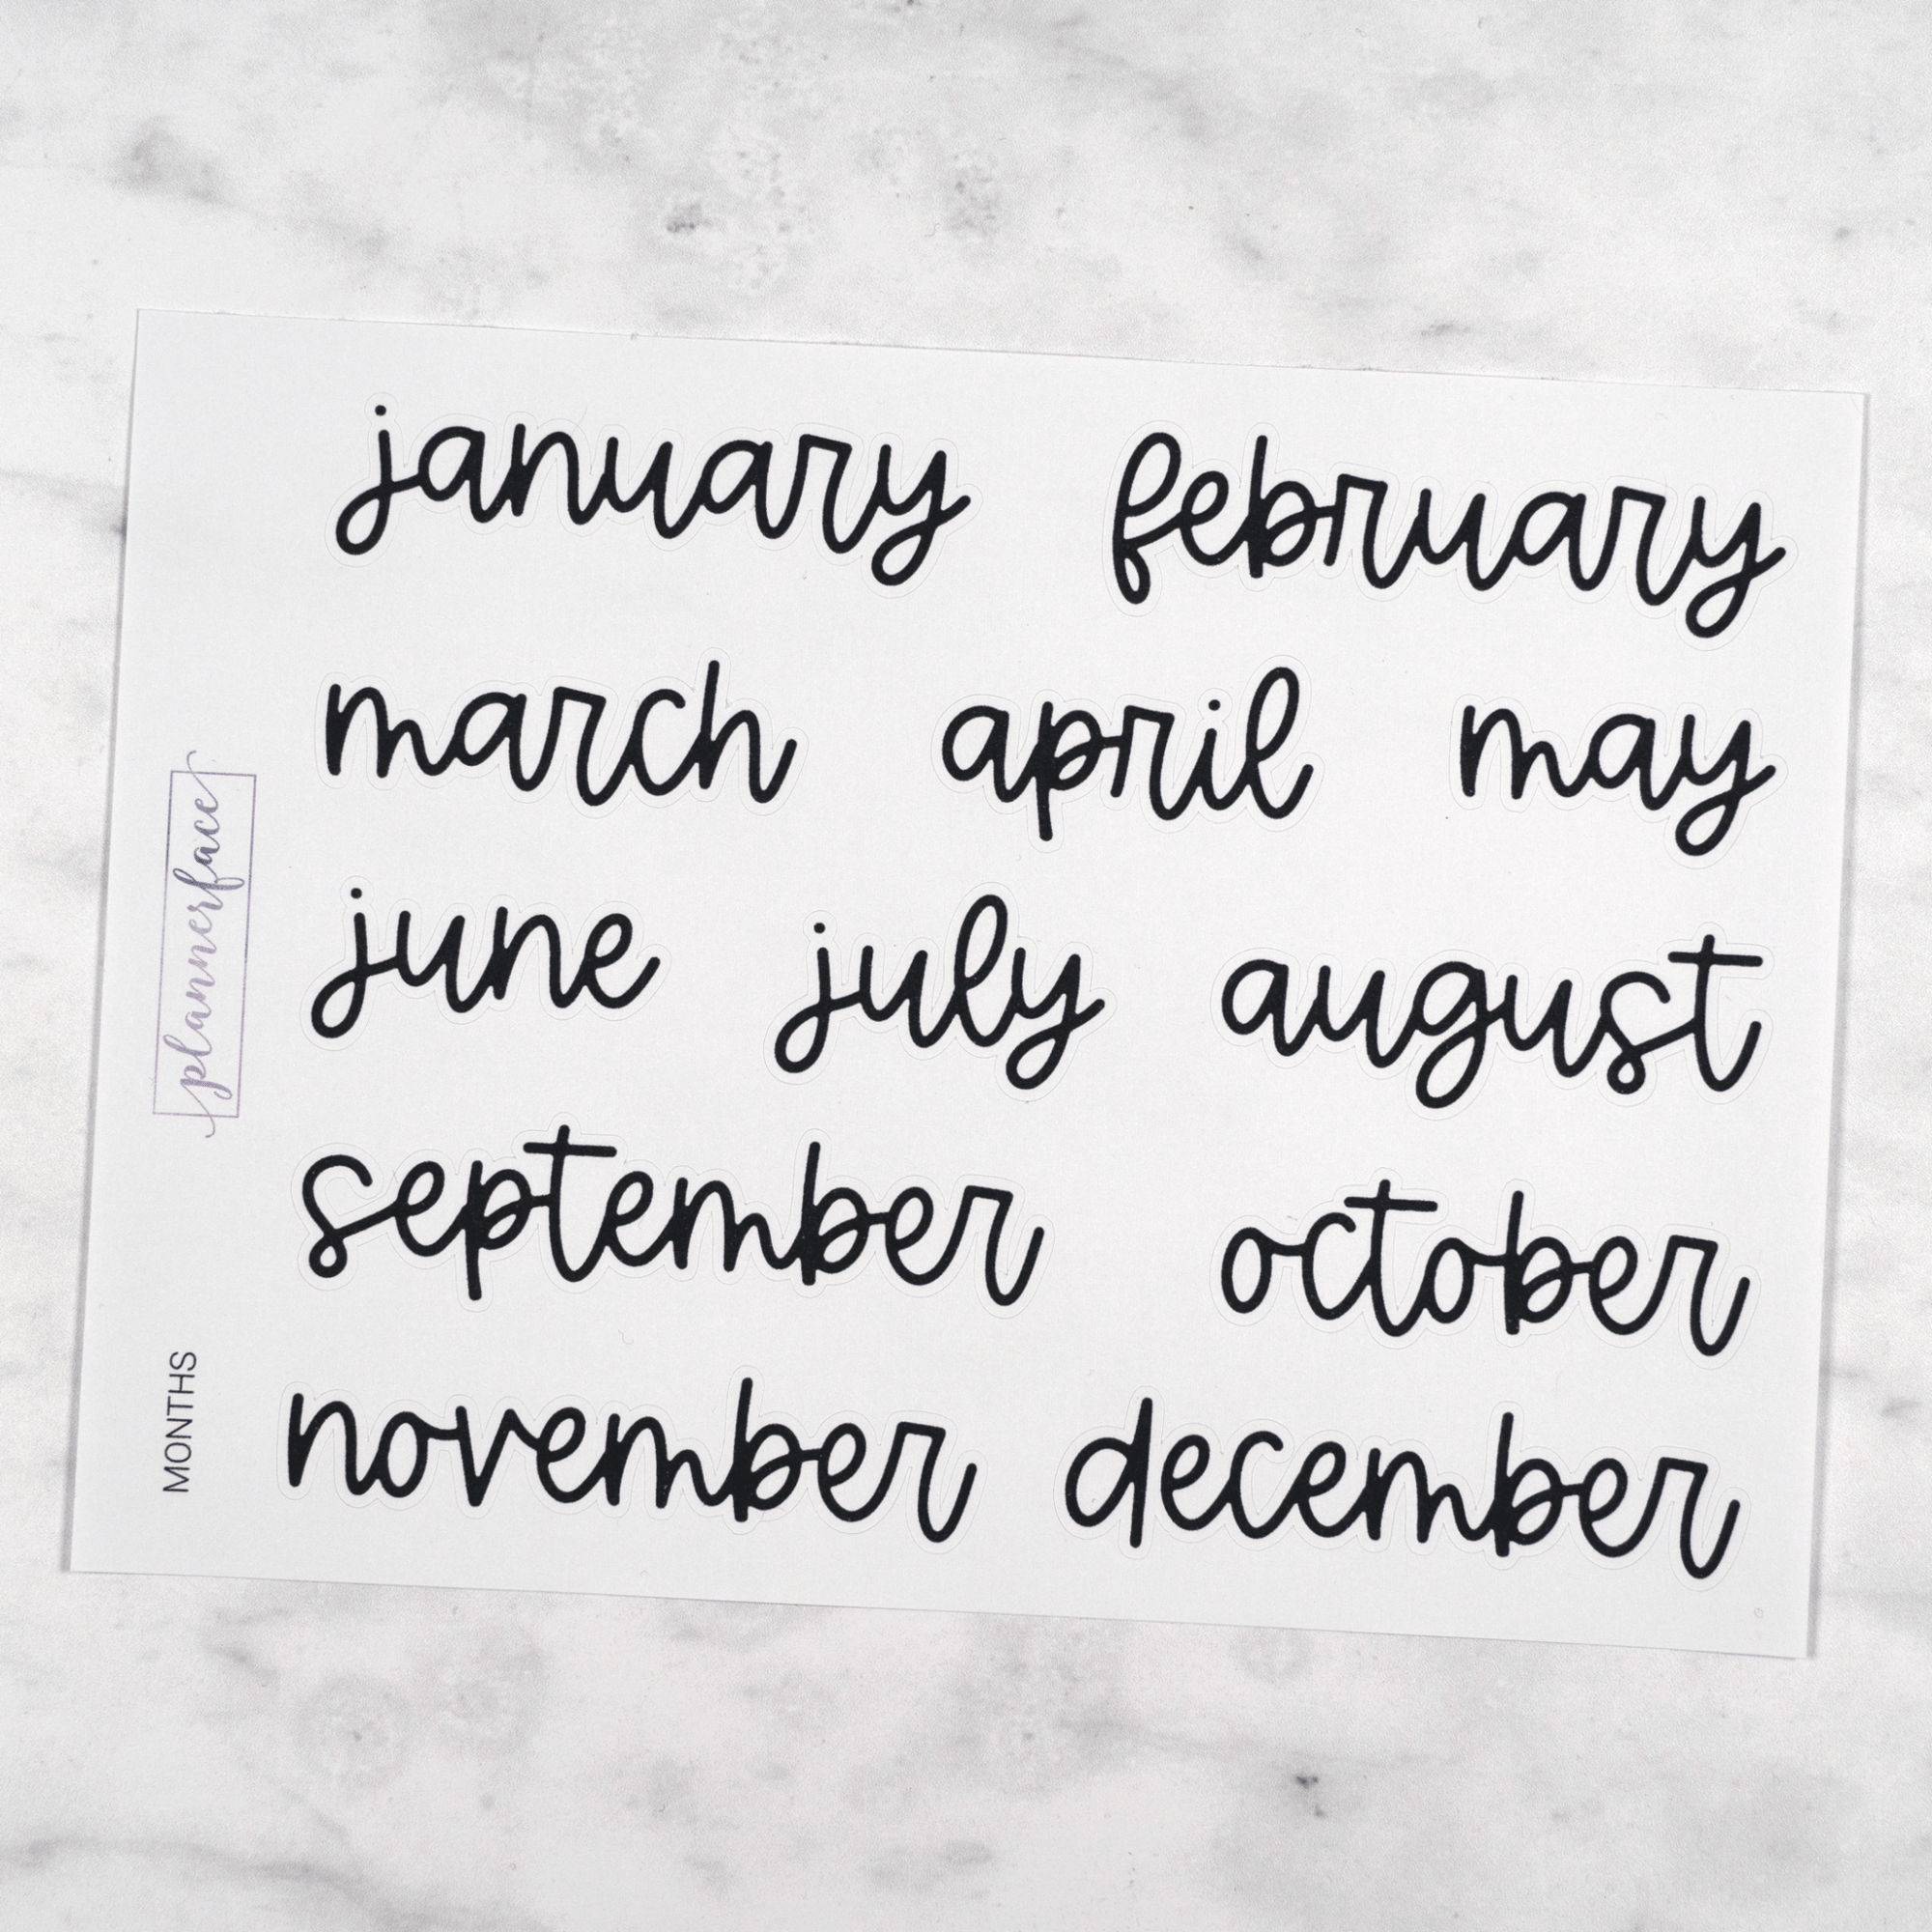 january february
march april may
june july august
september october
november december
plannerface
MONTHS